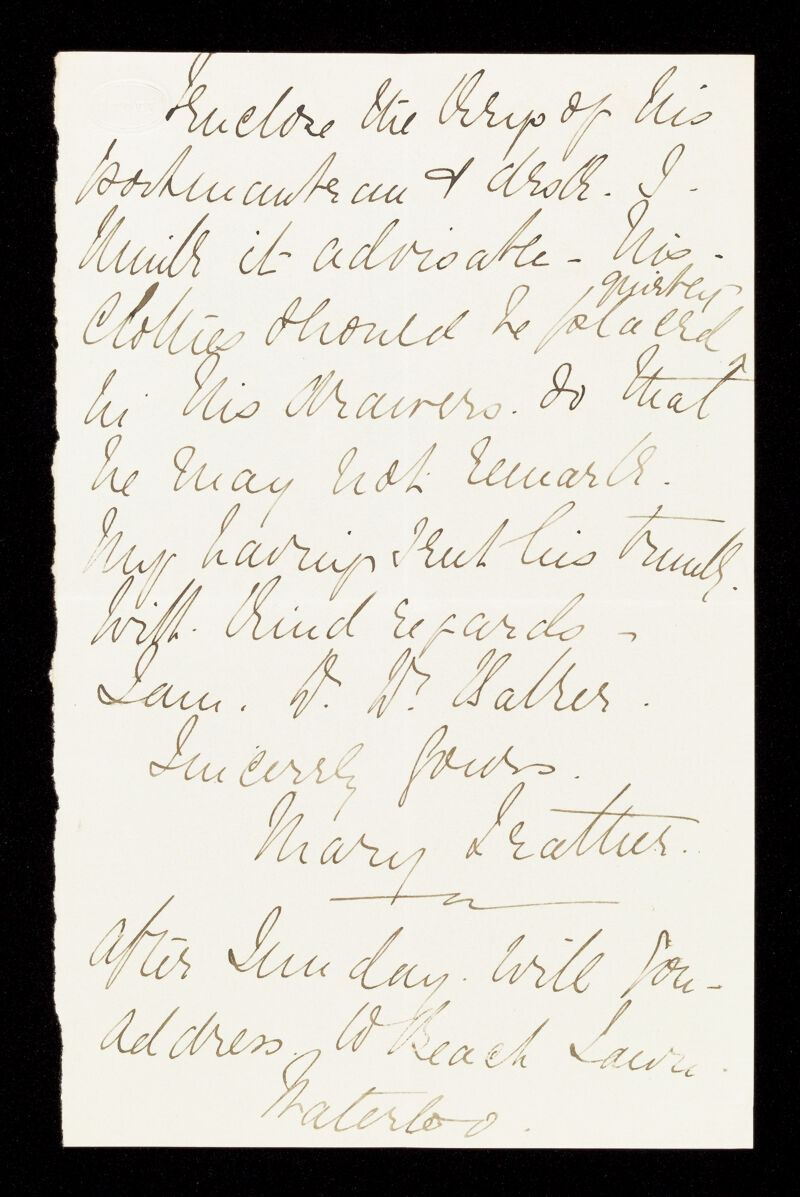 I enclose the keys of his
portmanteau & desk. I
think it advisable - his -
clothes should be placed quietly
in his drawers. so that
he may not remark.
my having sent his trunk.
With kind regards -
I am. D. Dr. Walker.
Sincerely yours.
Mary Leather.
after Sunday. will you -
address. 10 Beach Lawn.
Waterloo.